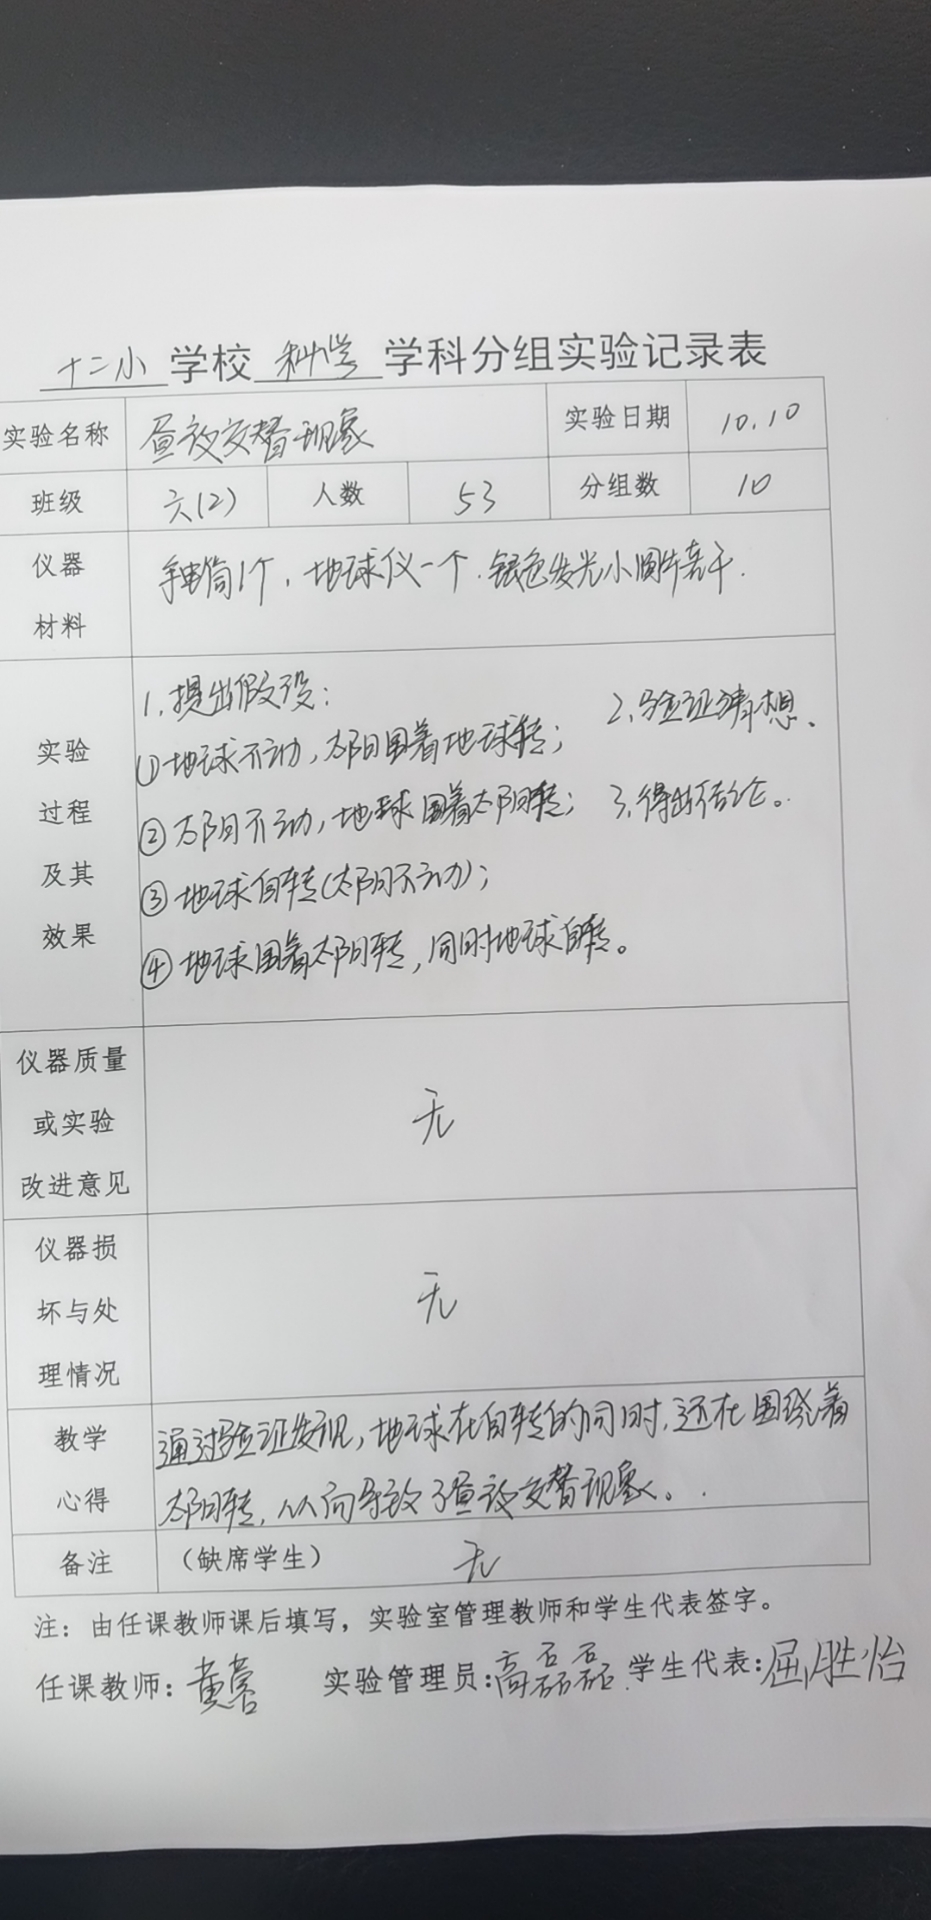 十二小学校科学学科分组实验记录表
实验名称 昼夜交替现象 实验日期 10.10
班级 六(2) 人数 53 分组数 10
仪器材料 手电筒1个，地球仪一个.银色发光小圆片若干.
实验过程及其效果
1.提出假设：
2.验证猜想、
①地球不动，太阳围着地球转；
②太阳不动，地球围着太阳转； 3.得出结论。
③地球自转(太阳不动)；
④地球围着太阳转，同时地球自转。
仪器质量或实验改进意见 无
仪器损坏与处理情况 无
教学心得 通过验证发现，地球在自转的同时，还在围绕着
太阳转，从而导致了昼夜交替现象。.
备注 （缺席学生） 无
注：由任课教师课后填写，实验室管理教师和学生代表签字。
任课教师：黄蓉 实验管理员：高磊磊 学生代表：屈胜怡